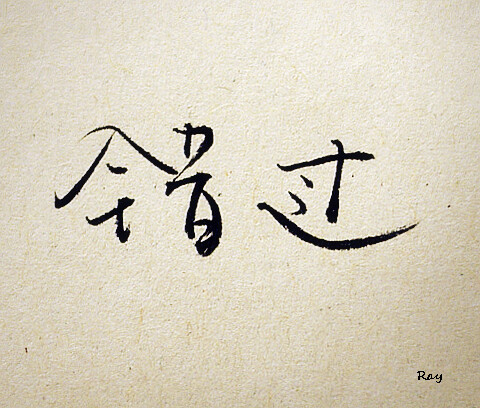 错过
Ray